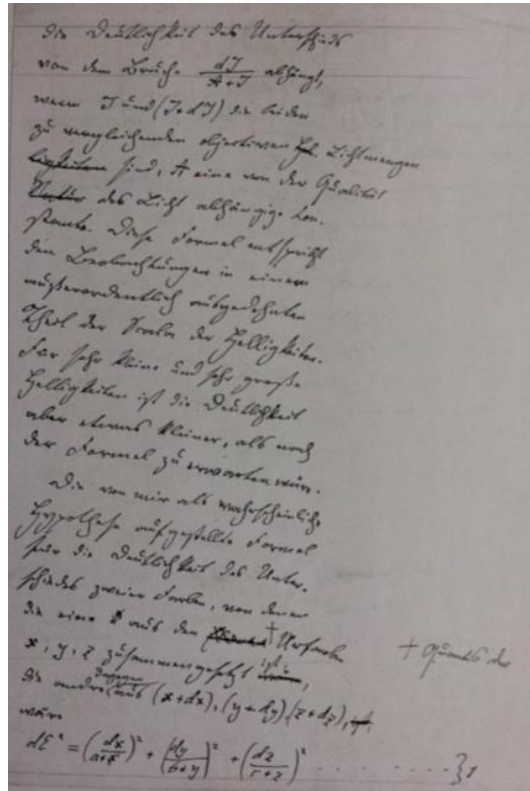 die Deutlichkeit des Unterschieds
von dem Bruche dJ/(A+J) abhängt,
wenn J und (J+dJ) die beiden
zu vergleichenden objectiven Lichtmengen
sind, A eine von der Qualität
des Licht abhängige Con-
stante. Diese Formel entspricht
den Beobachtungen in einem
außerordentlich ausgedehnten
Theil der Scala der Helligkeiten.
Für sehr kleine und sehr große
Helligkeiten ist die Deutlichkeit
aber etwas kleiner, als nach
der Formel zu erwarten wäre.
Die von mir als wahrscheinliche
Hypothese aufgestellte Formel
für die Deutlichkeit des Unter-
schiedes zweier Farben, von denen
die eine aus den † Urfarben
† Quantis der
x, y, z zusammengesetzt ist,
die andre dagegen aus (x+dx), (y+dy), (z+dz),
wäre
dE² = (dx/(a+x))² + (dy/(b+y))² + (dz/(c+z))² . . . . . . . }1